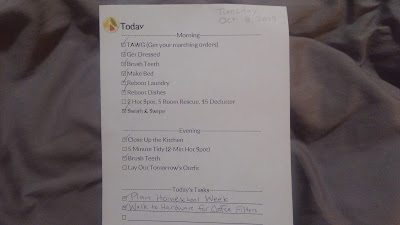 Tuesday
Oct. 8, 2019
Today
Morning
TAWG (Get your marching orders)
Get Dressed
Brush Teeth
Make Bed
Reboot Laundry
Reboot Dishes
2 Hot Spot, 5 Room Rescue, 15 Declutter
Swish & Swipe
Evening
Close Up the Kitchen
5 Minute Tidy (2-Min Hot Spot)
Brush Teeth
Lay Out Tomorrow's Outfit
Today's Tasks
Plan Homeschool Week
Walk to Hardware for Coffee Filters